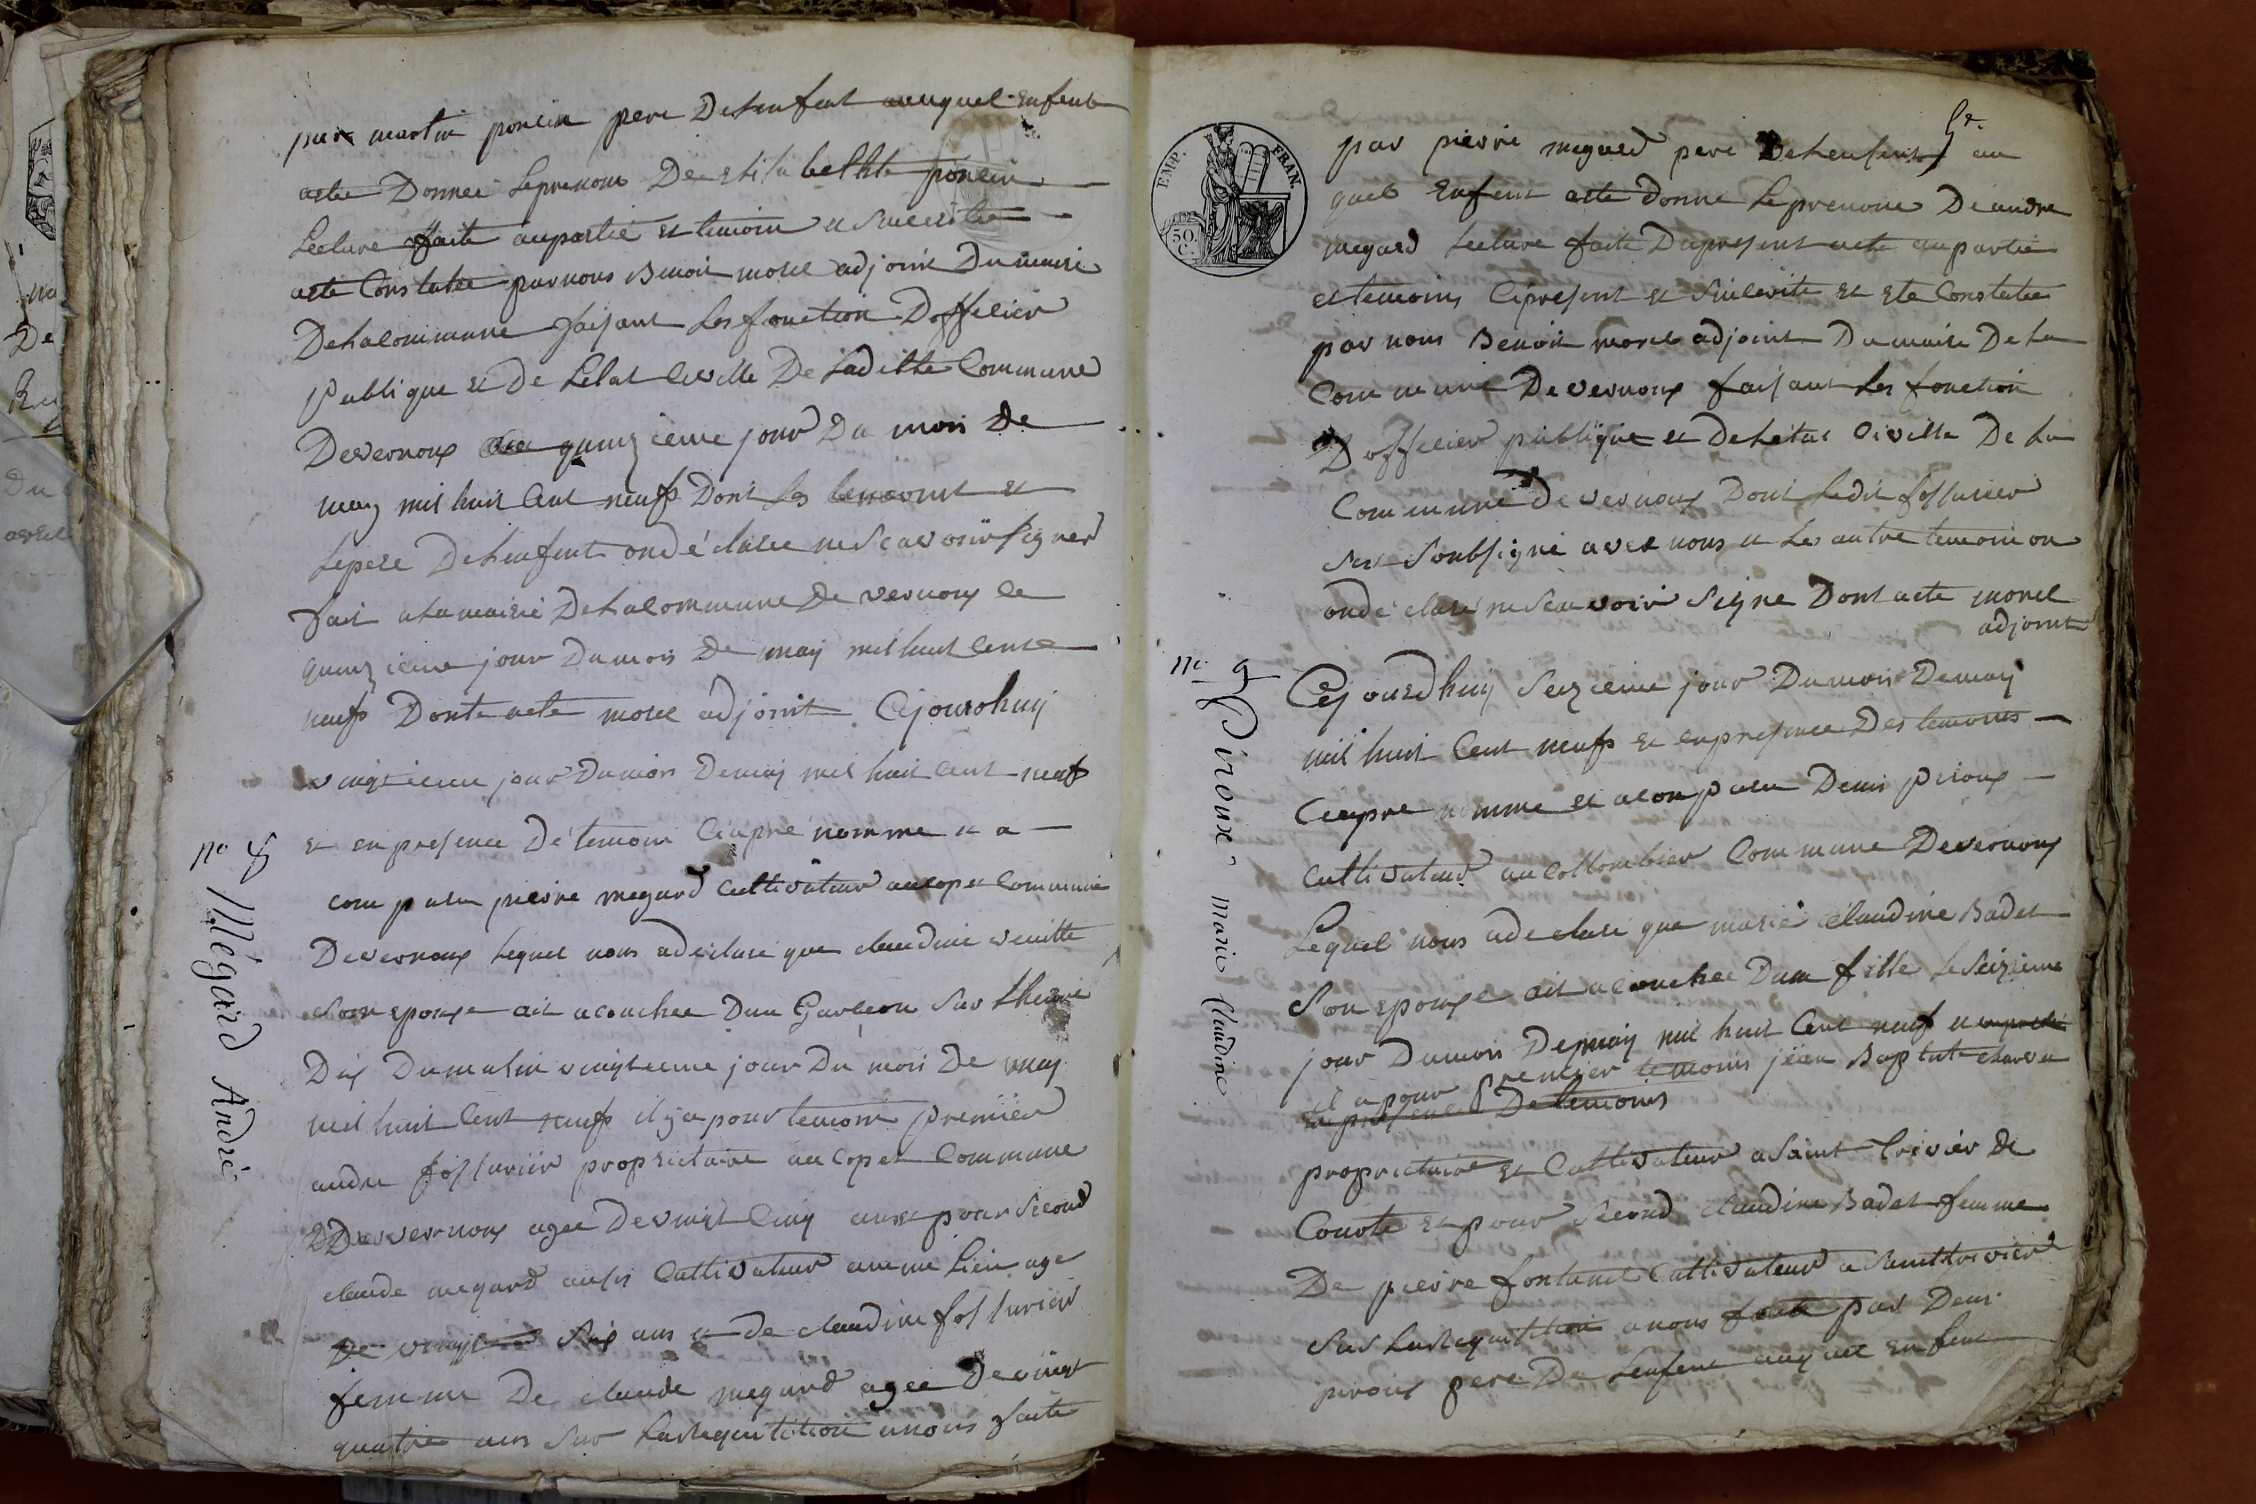 par martin poncin pere Delenfant auquel Enfent
aete Donnee Leprenom De Elisabethte poncin
Lecture faite aupartie et temoin
aete Constatee parnous Benoit morel adjoint Dumaire
Delacommune faisant Les fonction Dofficier
Publique et De Letat Civille De Laditte Commune
Devernoux quinzieme jour Du mois De
may mil huit Cent neuf Dont Les temoins et
Lepere Delenfent ondéclaree nescavoir signer
fait alamairie Delacommune De vernoux le
quinzieme jour Dumois De may mil huit Cent
neuf Dont acte morel adjoint Cejourdhuy
vingtieme jour Dumois Demay mil huit Cent neuf
et enpresence Detemoin Ciapre nomme et a
comparu pierre megard Cultivateur aucopet Commune
Devernoux Lequel nous adeclare que claudine
Son epouse ait acouchee Dun Garceon Sur Lheure
Dix Dumatin vingtieme jour Du mois De may
mil huit Cent neuf il ya pour temoin premier
andre fossurier proprietaire au Copet Commune
De vernoux agee Devingt Cinq ans et pour Second
claude megard aussi Cultivateur aumeme Lieu age
De vingt Six ans et De claudine fossurier
femme De claude megard agee Devingt
quatre ans Sur Larequisition anous faite
no 8
Mégard André
Ee.
EMP. FRAN.
50. C.
par pierre megard pere Delenfent au
quel Enfent aete donne Leprenom De andre
megard Lecture faite Dupresent acte aupartie
et temoins Cipresent et et ete Constatee
par nous Benoit morel adjoint Dumaire De La
Commune Devernoux faisant Les fonction
Dofficier publique et DeLetat Civille De La
Commune De vernoux Dont Ledit fossurier
Ses Soubsigne avec nous et Les autre temoin on
ondeclare nescavoir Signe Dont acte morel
adjoint
no 9
Piroux, marie Claudine
Cejourdhuy Seizieme jour Dumois Demay
mil huit Cent neuf et enpresence Des temoins
Ciapre nomme et acomparu Denis piroux
Cultivateur au Collombier Commune Devernoux
Lequel nous adeclare que marie claudine Badet
Son epouse ait acouchee Dune fille Le Seizieme
jour Dumois Demay mil huit Cent neuf et
il a pour premier temoins jean Baptiste
enpresence De temoins
proprietaire et Cultivateur a Saint trivier De
Courte et pour Second claudine Badet femme
De pierre fontanel Cultivateur a Saint trivier
Sur Larequisition anous faite par Deni
piroux pere De Lenfent auquel enfent